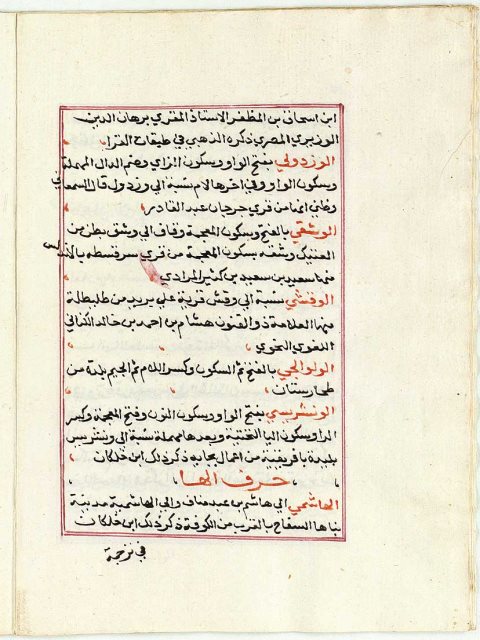 ابن اسحاق بن المظفر الاستاذ المقري برهان الدين
الوزيري المصري ذكره الذهبي في طبقات القرا
الوزدولي بفتح الواو وسكون الزاي وضم الدال المهملة
وسكون الواو وفي اخرها لام نسبة الى وزدول قال السمعاني
وظني انها من قري جرجان عبد القادر
الوشقي بالفتح وسكون المعجمة وقاف الى وشق بطن من
العتيك وشقه بسكون المعجمة من قري سرقسطه بالاندلس
منها سعيد بن سعيد بن كثير المرادي
الوقشي نسبة الى وقش قرية على بريد من طليطلة
منها العلامة ذو الفنون هشام بن احمد بن خالد الكناني
اللغوي النحوي
الولوالجي بالفتح ثم السكون وكسر اللام ثم الجيم بلدة من
طخارستان
الونشريسي بفتح الواو وسكون النون وفتح المعجمة وكسر
الرا وسكون اليا التحتية وبعدها مهملة نسبة الى ونشريس
بليدة بافريقية من اعمال بجايه ذكر ذلك ابن خلكان
حرف الها
الهاشمي الى هاشم بن عبد مناف والى الهاشمية مدينة
بناها السفاح بالقرب من الكوفة ذكر ذلك ابن خلكان
في ترجمة